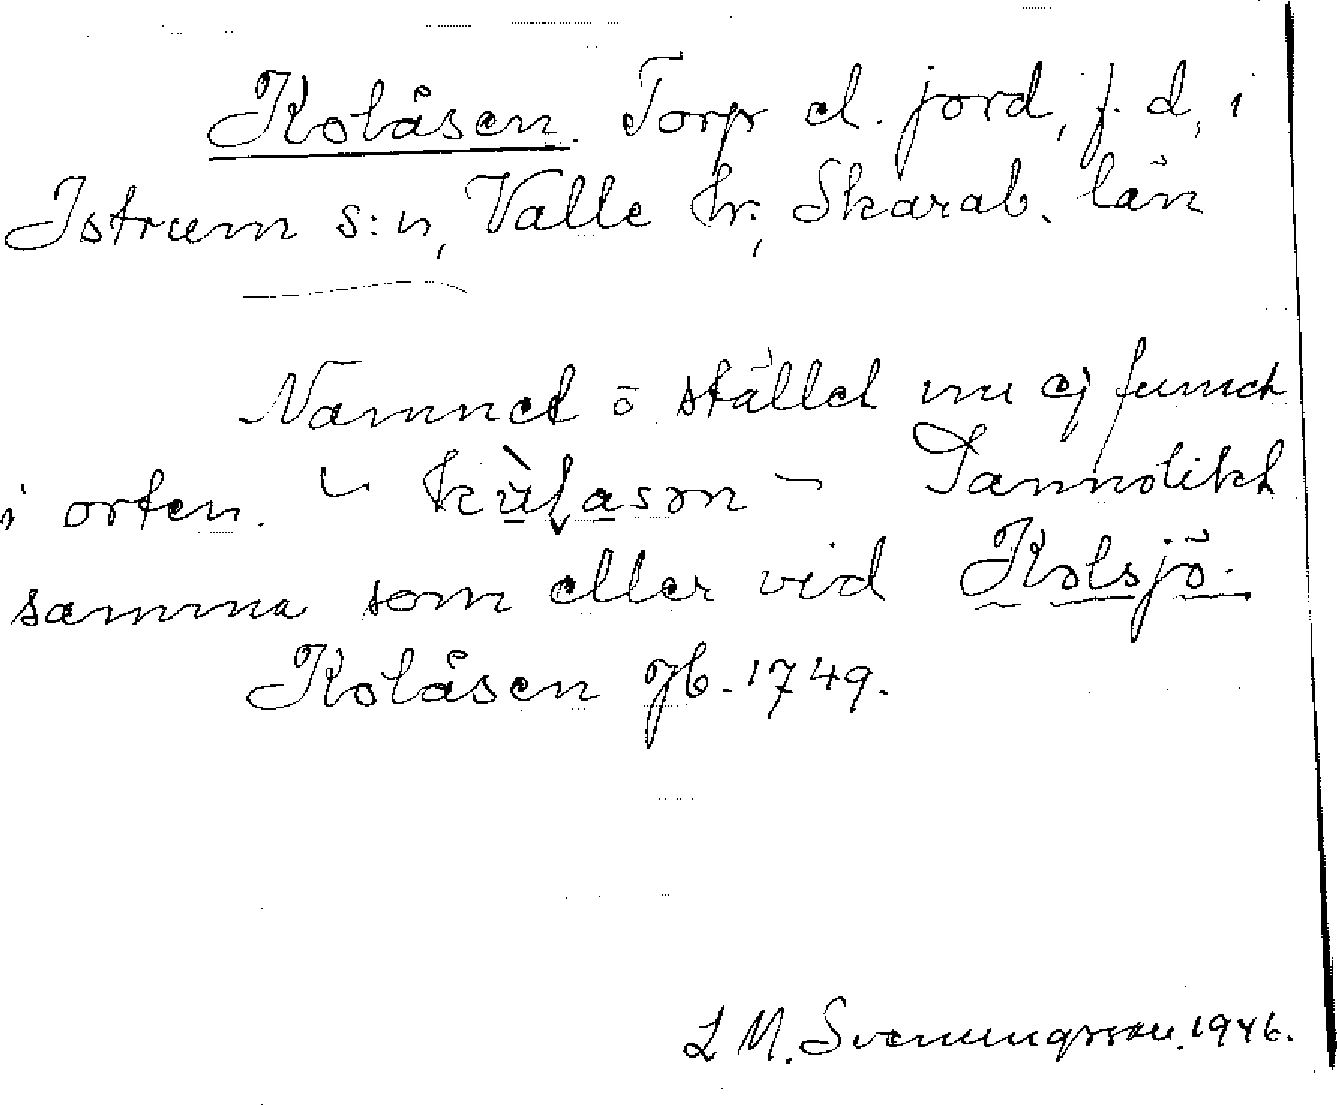 Kolåsen. Torp el. jord, f. d, i
Istrum s:n, Valle hr., Skarab. län
Namnet o stället nu ej funnet
i orten. ~ kùḷason ~ Sannolikt
samma som eller vid Kolsjö.
Kolåsen Jb. 1749.
L M. Svenungsson. 1946.